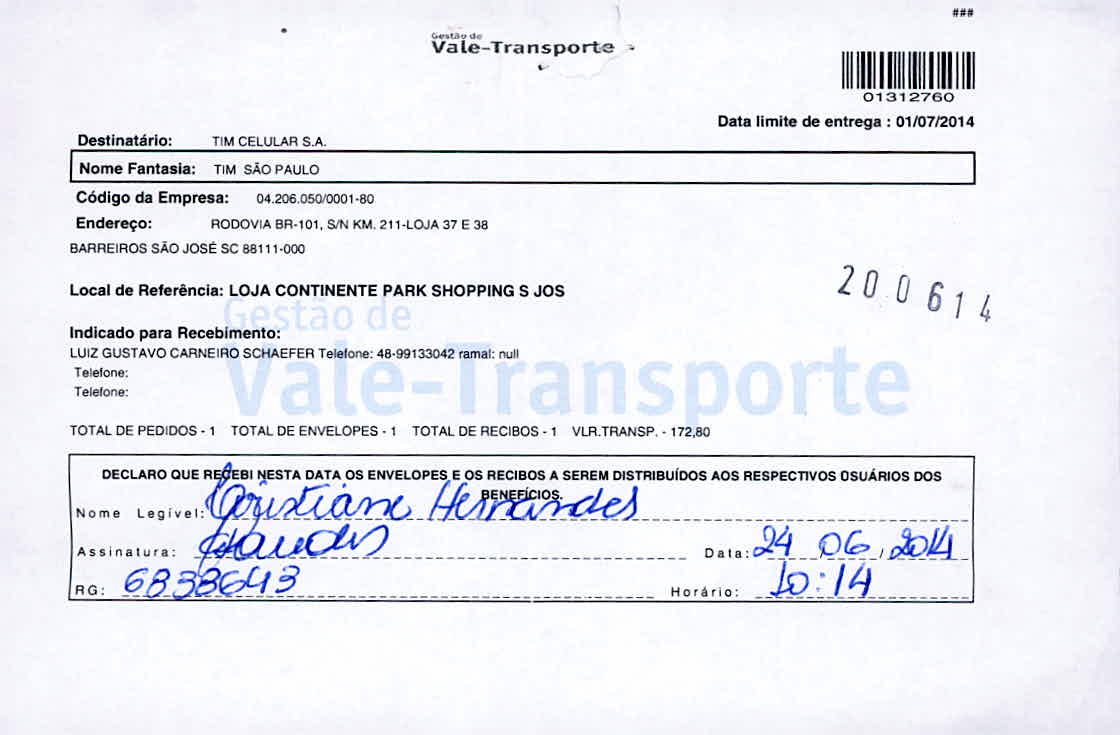 ###
Gestão de
Vale-Transporte
01312760
Data limite de entrega : 01/07/2014
Destinatário: TIM CELULAR S.A.
Nome Fantasia: TIM SÃO PAULO
Código da Empresa: 04.206.050/0001-80
Endereço: RODOVIA BR-101, S/N KM. 211-LOJA 37 E 38
BARREIROS SÃO JOSÉ SC 88111-000
Local de Referência: LOJA CONTINENTE PARK SHOPPING S JOS
200614
Gestão de
Vale-Transporte
Indicado para Recebimento:
LUIZ GUSTAVO CARNEIRO SCHAEFER Telefone: 48-99133042 ramal: null
Telefone:
Telefone:
TOTAL DE PEDIDOS - 1 TOTAL DE ENVELOPES - 1 TOTAL DE RECIBOS - 1 VLR.TRANSP. - 172,80
DECLARO QUE RECEBI NESTA DATA OS ENVELOPES E OS RECIBOS A SEREM DISTRIBUÍDOS AOS RESPECTIVOS USUÁRIOS DOS
BENEFÍCIOS.
Nome Legível: Cristiane Hernandes
Assinatura: Data: 24/06/2014
RG: 6838643 Horário: 10:14